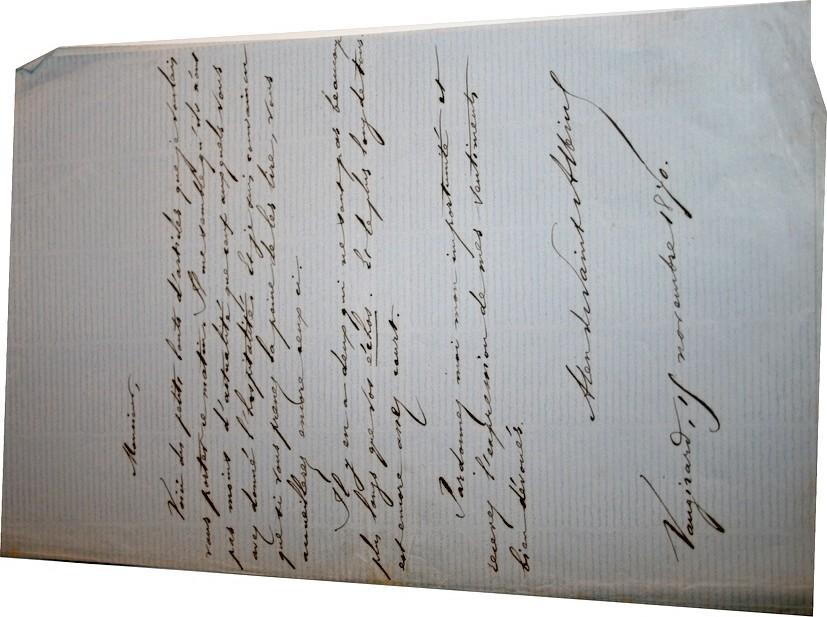 Monsieur,
Voici des petits bouts d'articles que je voulais
vous porter ce matin. Il me semble qu'ils n'ont
pas moins d'actualité que ceux auxquels vous
avez donné l'hospitalité et je suis convaincu
que si vous prenez la peine de les lire, vous
accueillerez encore ceux ci.
Il y en a deux qui ne sont pas beaucoup
plus longs que vos échos. Et le plus long de tous
est encore assez court.
Pardonnez moi mon importunité et
recevez l'expression de mes sentiments
bien dévoués.
Alex de Saint Albin
Vaugirard, 15 novembre 1870.